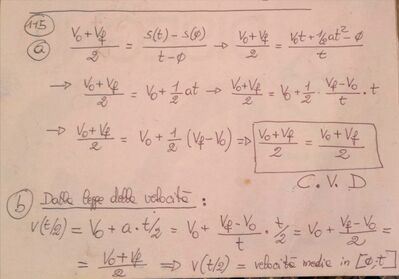 115
a (V₀+V_f)/2 = (s(t) − s(ϕ))/(t−ϕ) → (V₀+V_f)/2 = (V₀t+½at²−ϕ)/t
→ (V₀+V_f)/2 = V₀+½at → (V₀+V_f)/2 = V₀+½·(V_f−V₀)/t·t
→ (V₀+V_f)/2 = V₀+½(V_f−V₀) ⇒ (V₀+V_f)/2 = (V₀+V_f)/2
C.V.D
b Dalla legge della velocità:
V(t/2) = V₀+a·t/2 = V₀+(V_f−V₀)/t·t/2 = V₀+(V_f−V₀)/2 =
= (V₀+V_f)/2 ⇒ V(t/2) = velocità media in [ϕ,t]